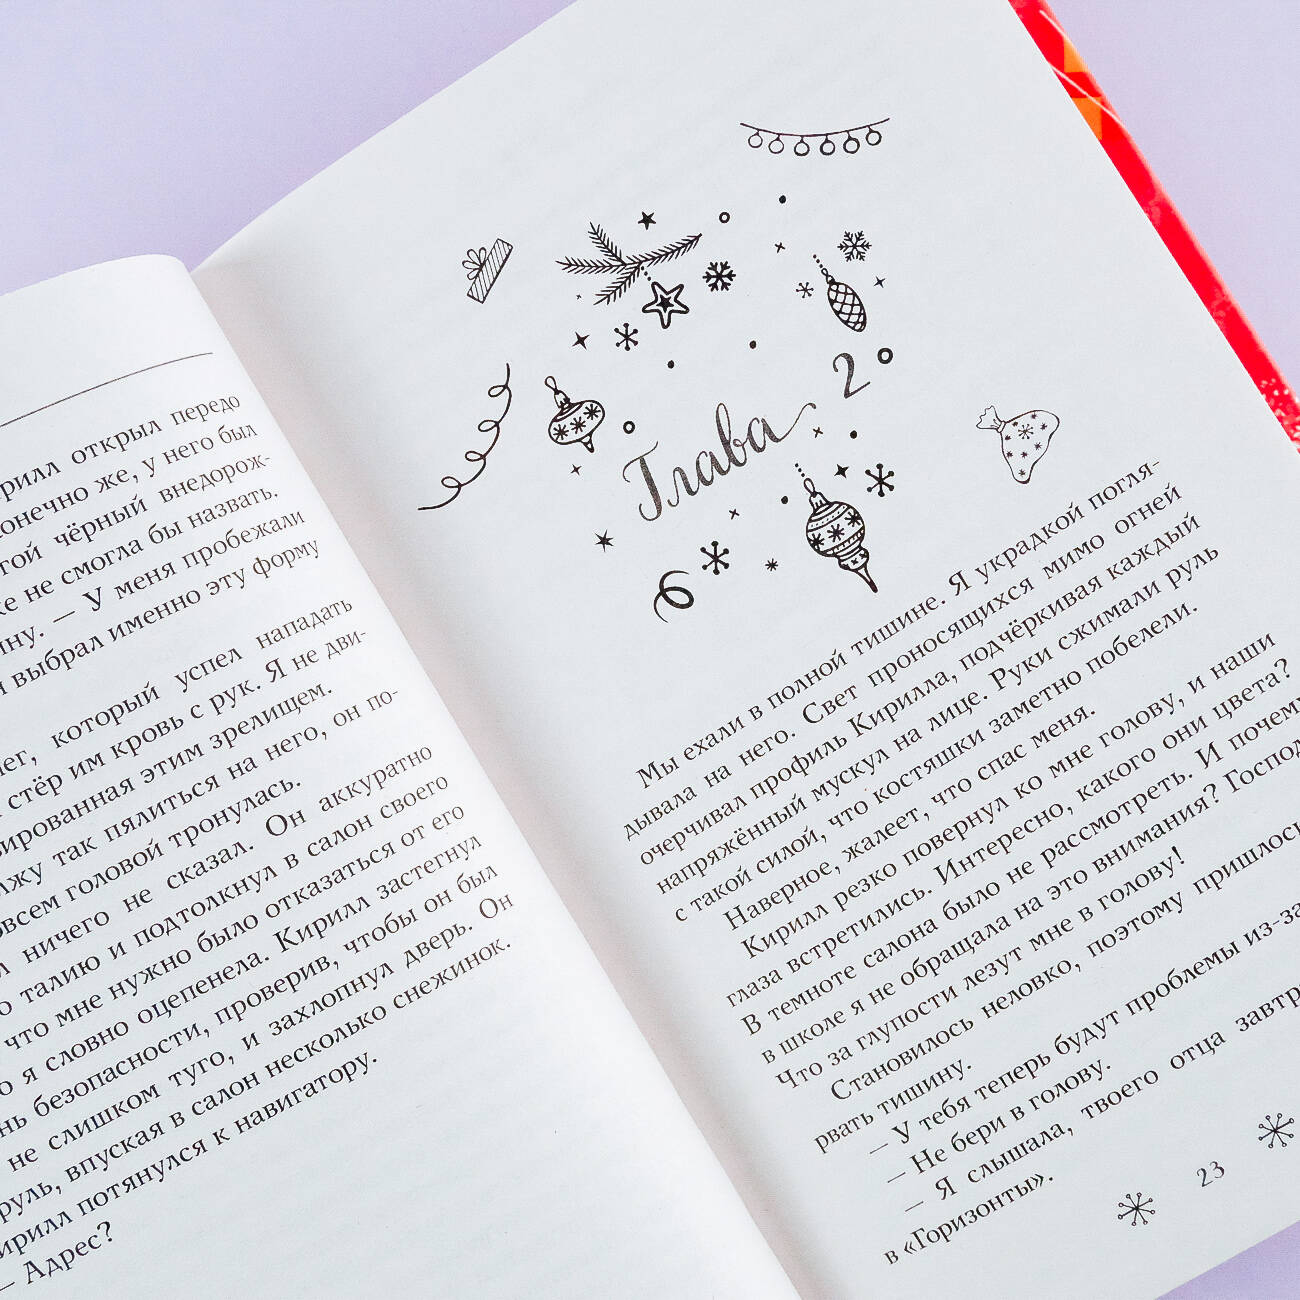 открыл передо
конечно же, у него был
чёрный внедорож-
не смогла бы назвать.
— У меня пробежали
выбрал именно эту форму
который успел нападать
стёр им кровь с рук. Я не дви-
этим зрелищем.
так пялиться на него, он по-
головой тронулась.
ничего не сказал. Он аккуратно
талию и подтолкнул в салон своего
что мне нужно было отказаться от его
я словно оцепенела. Кирилл застегнул
безопасности, проверив, чтобы он был
не слишком туго, и захлопнул дверь. Он
руль, впуская в салон несколько снежинок.
потянулся к навигатору.
— Адрес?
Глава 2
Мы ехали в полной тишине. Я украдкой погля-
дывала на него. Свет проносящихся мимо огней
очерчивал профиль Кирилла, подчёркивая каждый
напряжённый мускул на лице. Руки сжимали руль
с такой силой, что костяшки заметно побелели.
Наверное, жалеет, что спас меня.
Кирилл резко повернул ко мне голову, и наши
глаза встретились. Интересно, какого они цвета?
В темноте салона было не рассмотреть. И почему
в школе я не обращала на это внимания?
Что за глупости лезут мне в голову!
Становилось неловко, поэтому пришлось
рвать тишину.
— У тебя теперь будут проблемы из-за
— Не бери в голову.
— Я слышала, твоего отца
в «Горизонты».
23